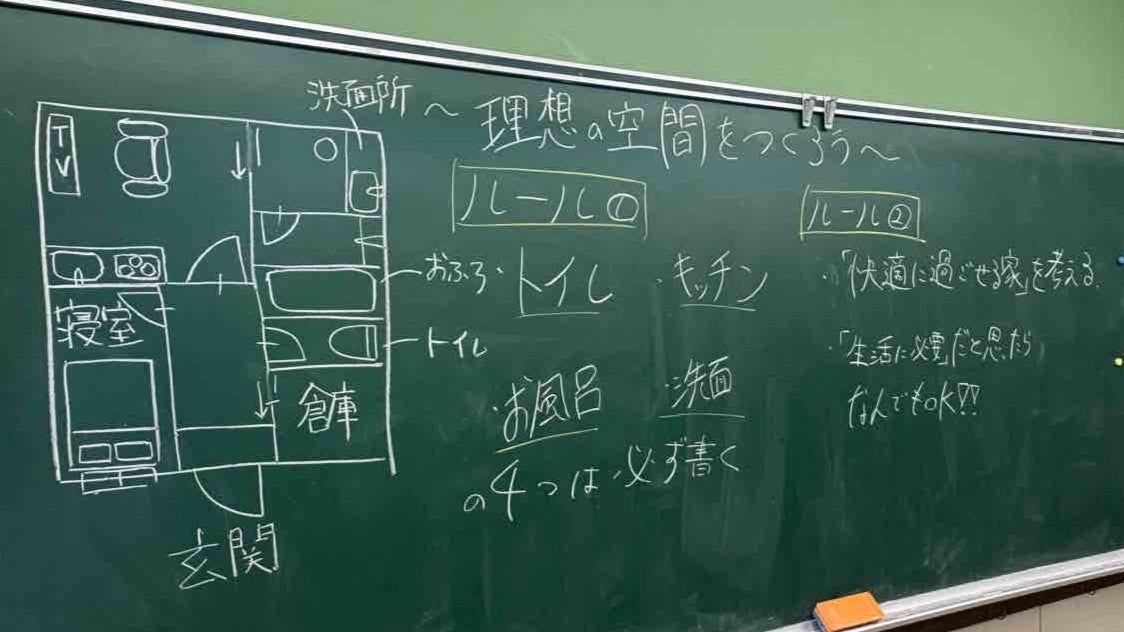 洗面所
～理想の空間をつくろう～
TV
寝室
おふろ
トイレ
倉庫
玄関
ルール①
・トイレ ・キッチン
・お風呂 ・洗面
の4つは必ず書く
ルール②
・「快適に過ごせる家」を考える
・「生活に必要」だと思ったら
なんでもOK!!